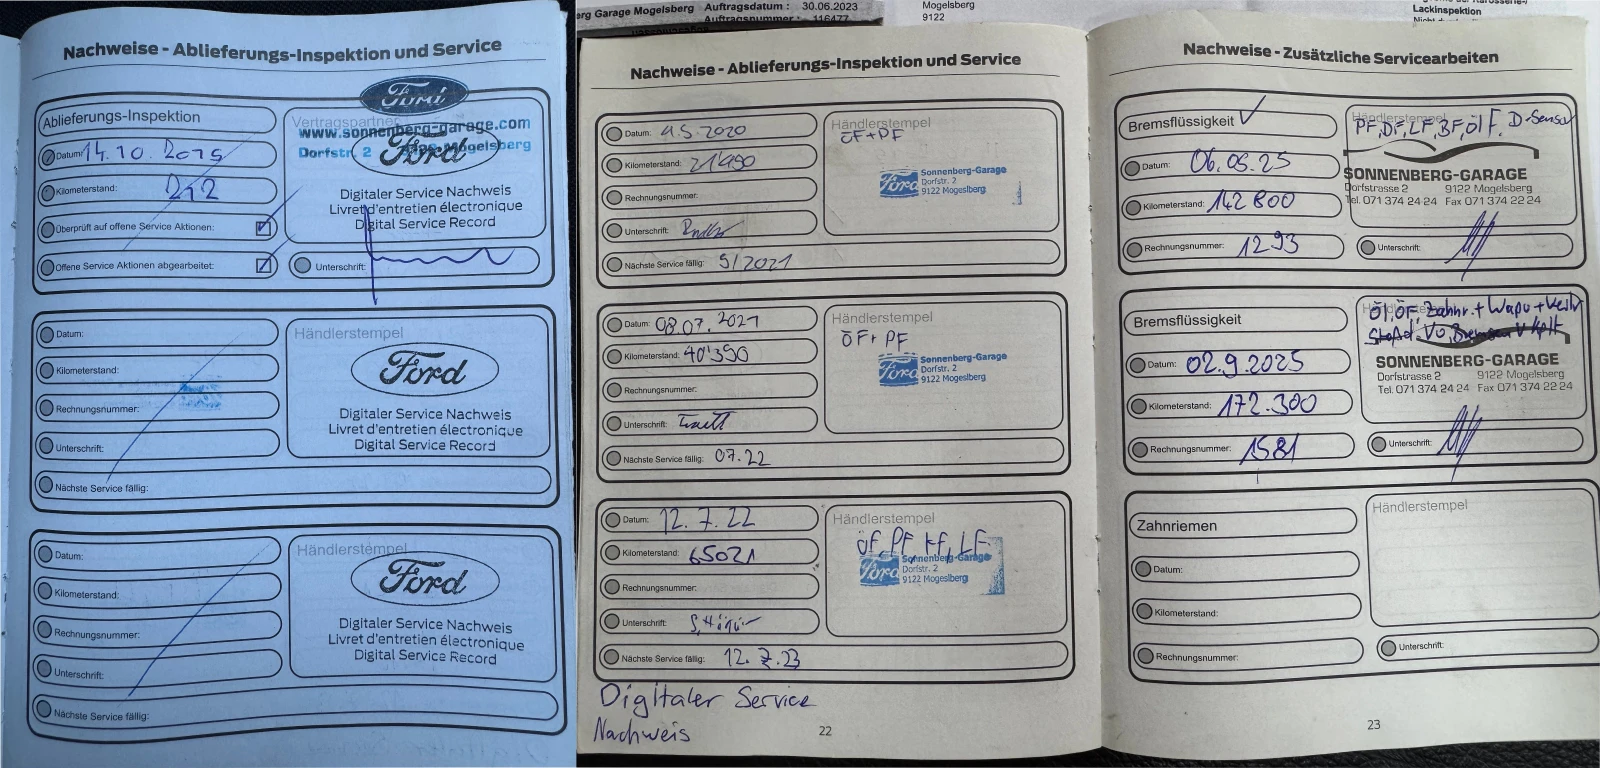 erg Garage Mogelsberg
Auftragsdatum : 30.06.2023
Auftragsnummer : 116477
Mogelsberg
9122
Lackinspektion
Nachweise - Ablieferungs-Inspektion und Service
Ablieferungs-Inspektion
Datum: 14.10.2019
Kilometerstand: 212
Überprüft auf offene Service Aktionen:
Offene Service Aktionen abgearbeitet:
Vertragspartner
Ford
www.sonnenberg-garage.com
Dorfstr. 2 Mogelsberg
Ford
Digitaler Service Nachweis
Livret d'entretien électronique
Digital Service Record
Unterschrift:
Datum:
Kilometerstand:
Rechnungsnummer:
Unterschrift:
Nächste Service fällig:
Händlerstempel
Ford
Digitaler Service Nachweis
Livret d'entretien électronique
Digital Service Record
Datum:
Kilometerstand:
Rechnungsnummer:
Unterschrift:
Nächste Service fällig:
Händlerstempel
Ford
Digitaler Service Nachweis
Livret d'entretien électronique
Digital Service Record
Nachweise - Ablieferungs-Inspektion und Service
Datum: 4.5.2020
Kilometerstand: 21'490
Rechnungsnummer:
Unterschrift:
Nächste Service fällig: 5/2021
Händlerstempel
ÖF+PF
Ford
Sonnenberg-Garage
Dorfstr. 2
9122 Mogeslberg
Datum: 08.07.2021
Kilometerstand: 40'390
Rechnungsnummer:
Unterschrift:
Nächste Service fällig: 07.22
Händlerstempel
ÖF+PF
Ford
Sonnenberg-Garage
Dorfstr. 2
9122 Mogeslberg
Datum: 12.7.22
Kilometerstand: 65021
Rechnungsnummer:
Unterschrift:
Nächste Service fällig: 12.7.23
Händlerstempel
ÖF, PF, KF, LF
Ford
Sonnenberg-Garage
Dorfstr. 2
9122 Mogeslberg
Digitaler Service
Nachweis
22
Nachweise - Zusätzliche Servicearbeiten
Bremsflüssigkeit ✓
Datum: 06.05.25
Kilometerstand: 142800
Rechnungsnummer: 1293
Händlerstempel
PF, DF, LF, BF, Öl F. D-Sensor
SONNENBERG-GARAGE
Dorfstrasse 2 9122 Mogelsberg
Tel. 071 374 24 24 Fax 071 374 22 24
Unterschrift:
Bremsflüssigkeit
Datum: 02.9.2025
Kilometerstand: 172.300
Rechnungsnummer: 1581
Öl, ÖF, Zahnr. + Wapu + Keilr
Stoßd. VO, Bremsen V kplt
SONNENBERG-GARAGE
Dorfstrasse 2 9122 Mogelsberg
Tel. 071 374 24 24 Fax 071 374 22 24
Unterschrift:
Zahnriemen
Datum:
Kilometerstand:
Rechnungsnummer:
Händlerstempel
Unterschrift:
23